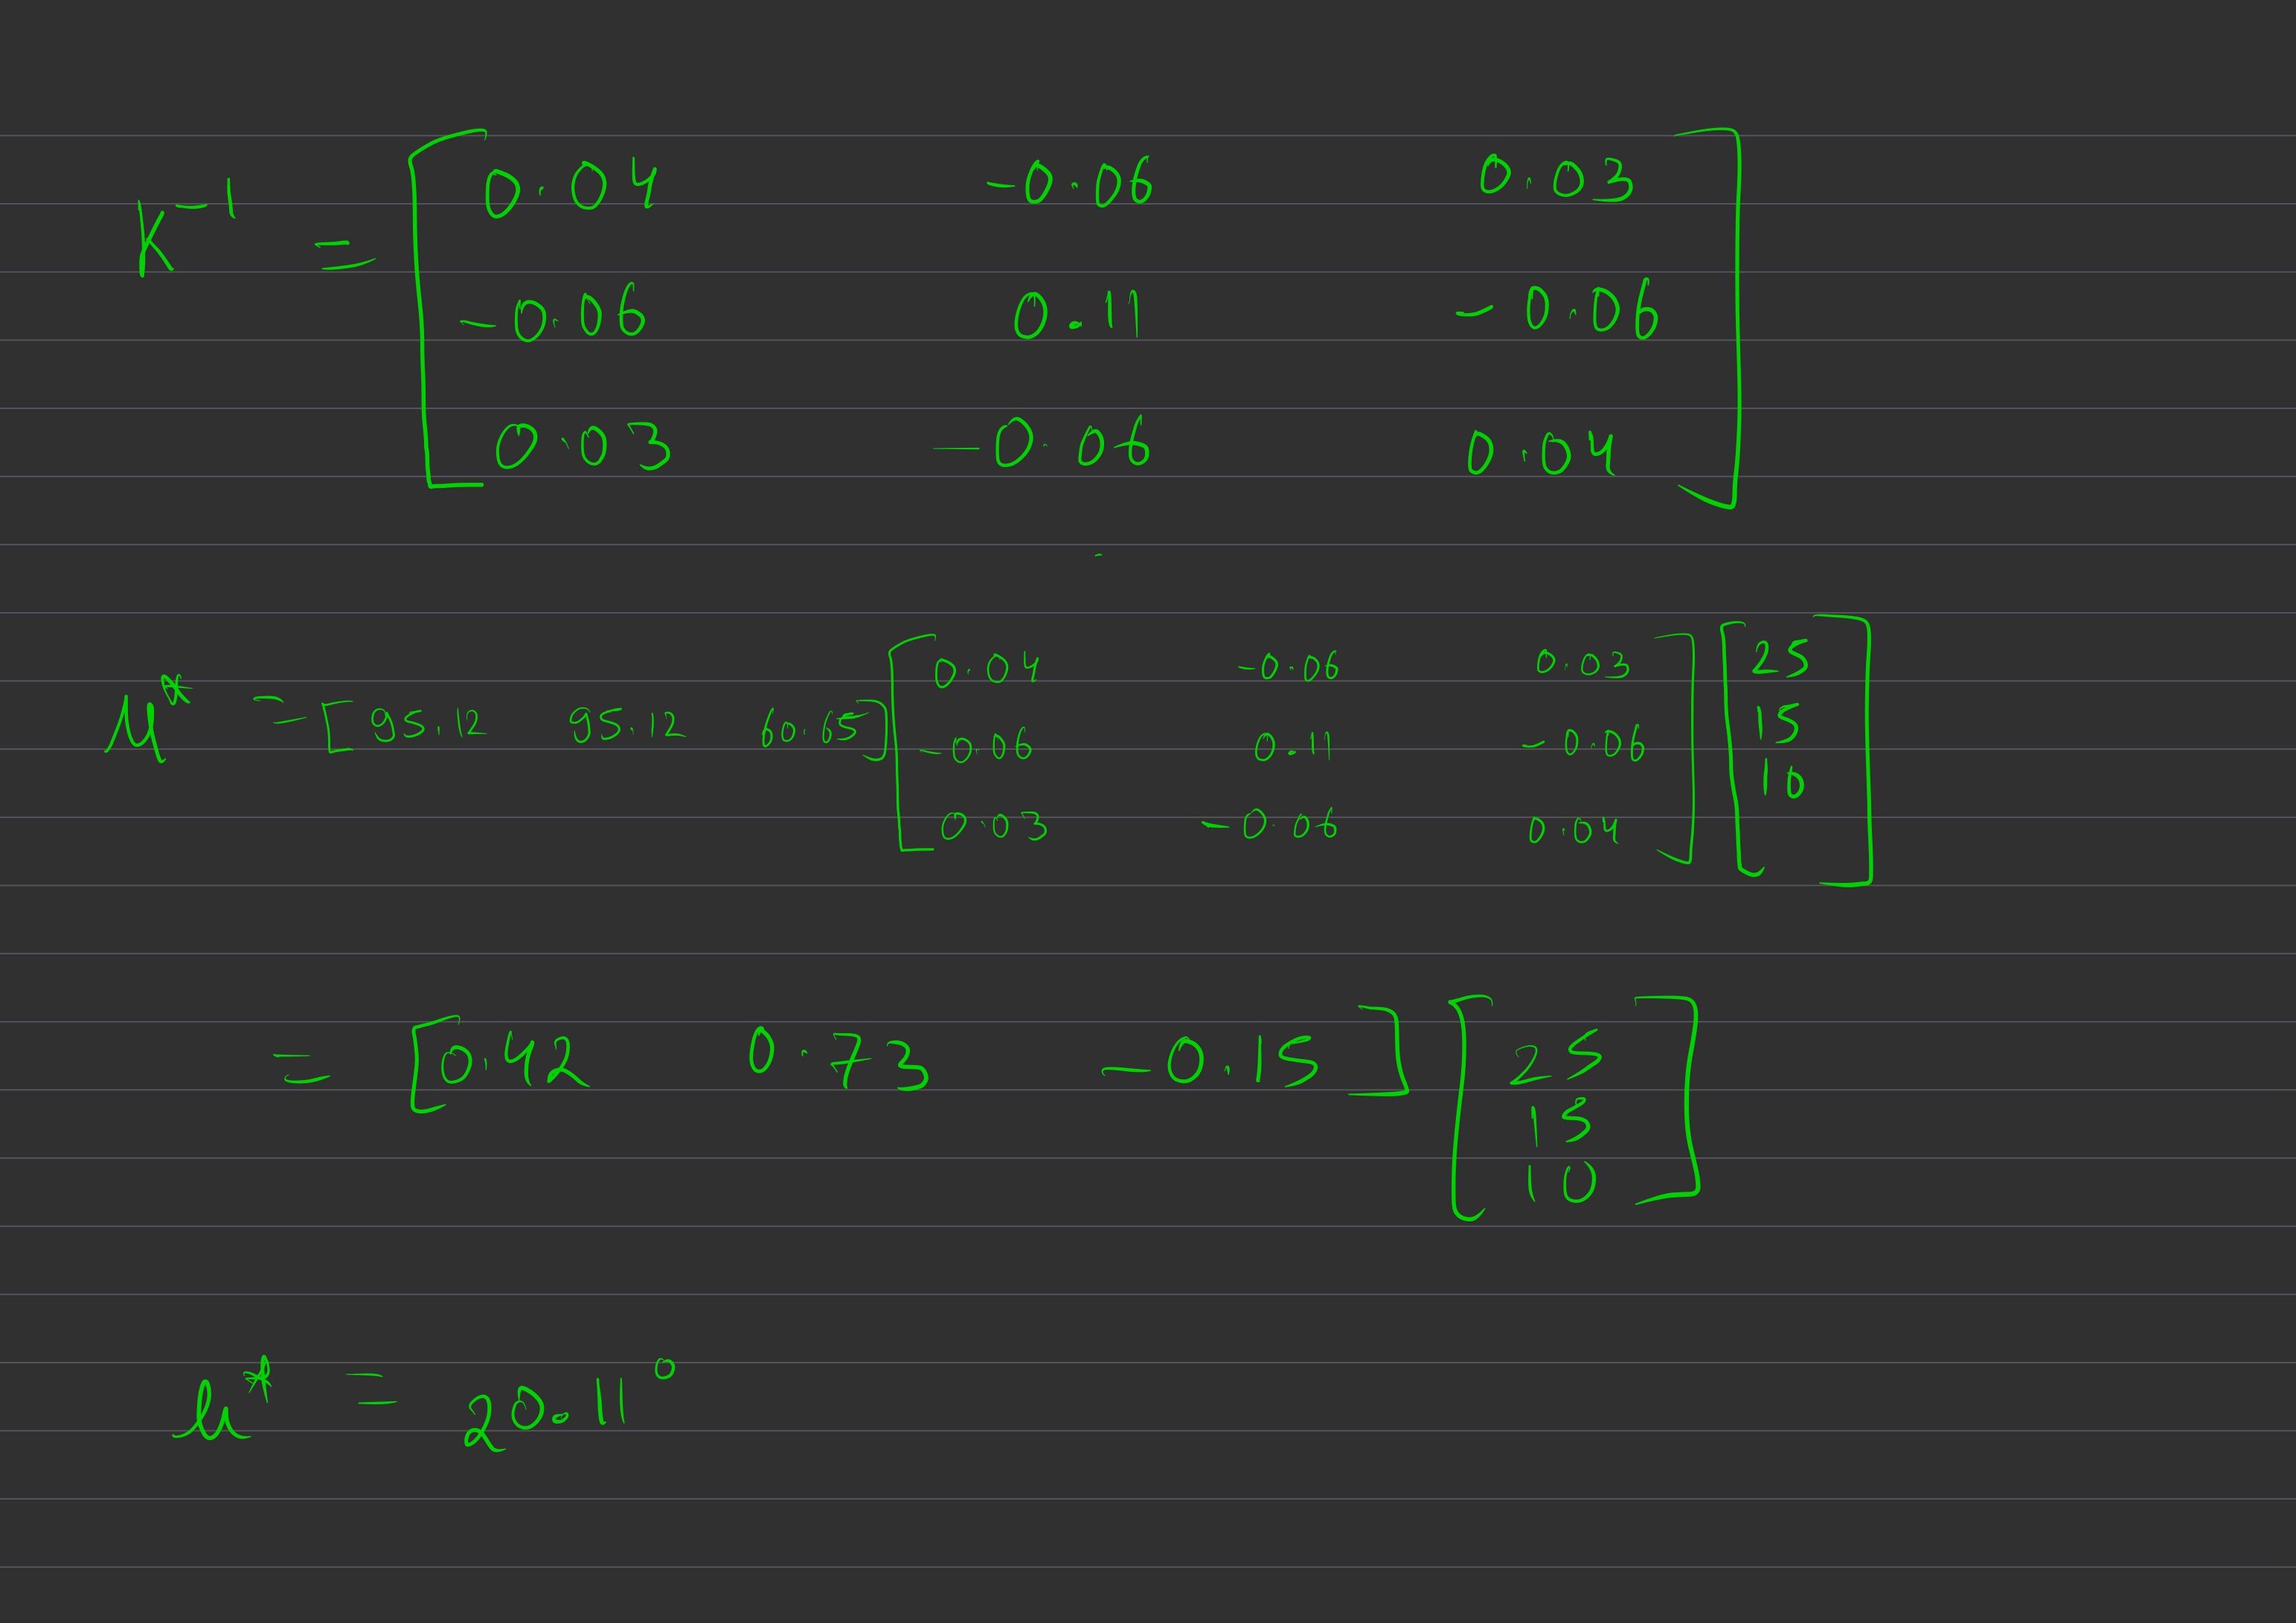 K⁻¹ = [ 0.04 -0.06 0.03
-0.06 0.11 -0.06
0.03 -0.06 0.04 ]
μ* = [ 95.12 95.12 60.65 ] [ 0.04 -0.06 0.03 [ 25
-0.06 0.11 -0.06 15
0.03 -0.06 0.04 ] 10 ]
= [ 0.42 0.73 -0.15 ] [ 25
15
10 ]
μ* = 20.11°